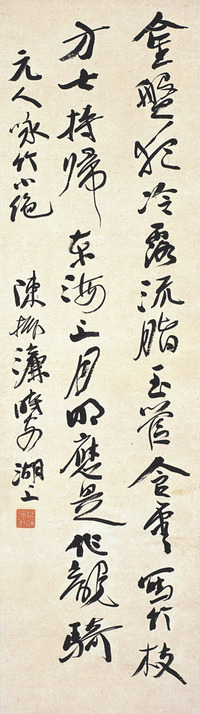 金盤犯冷露流脂玉管含雲寫竹枝
方士持歸東海上月明應是作龍騎
元人咏竹小絕 陳振濂時客湖上